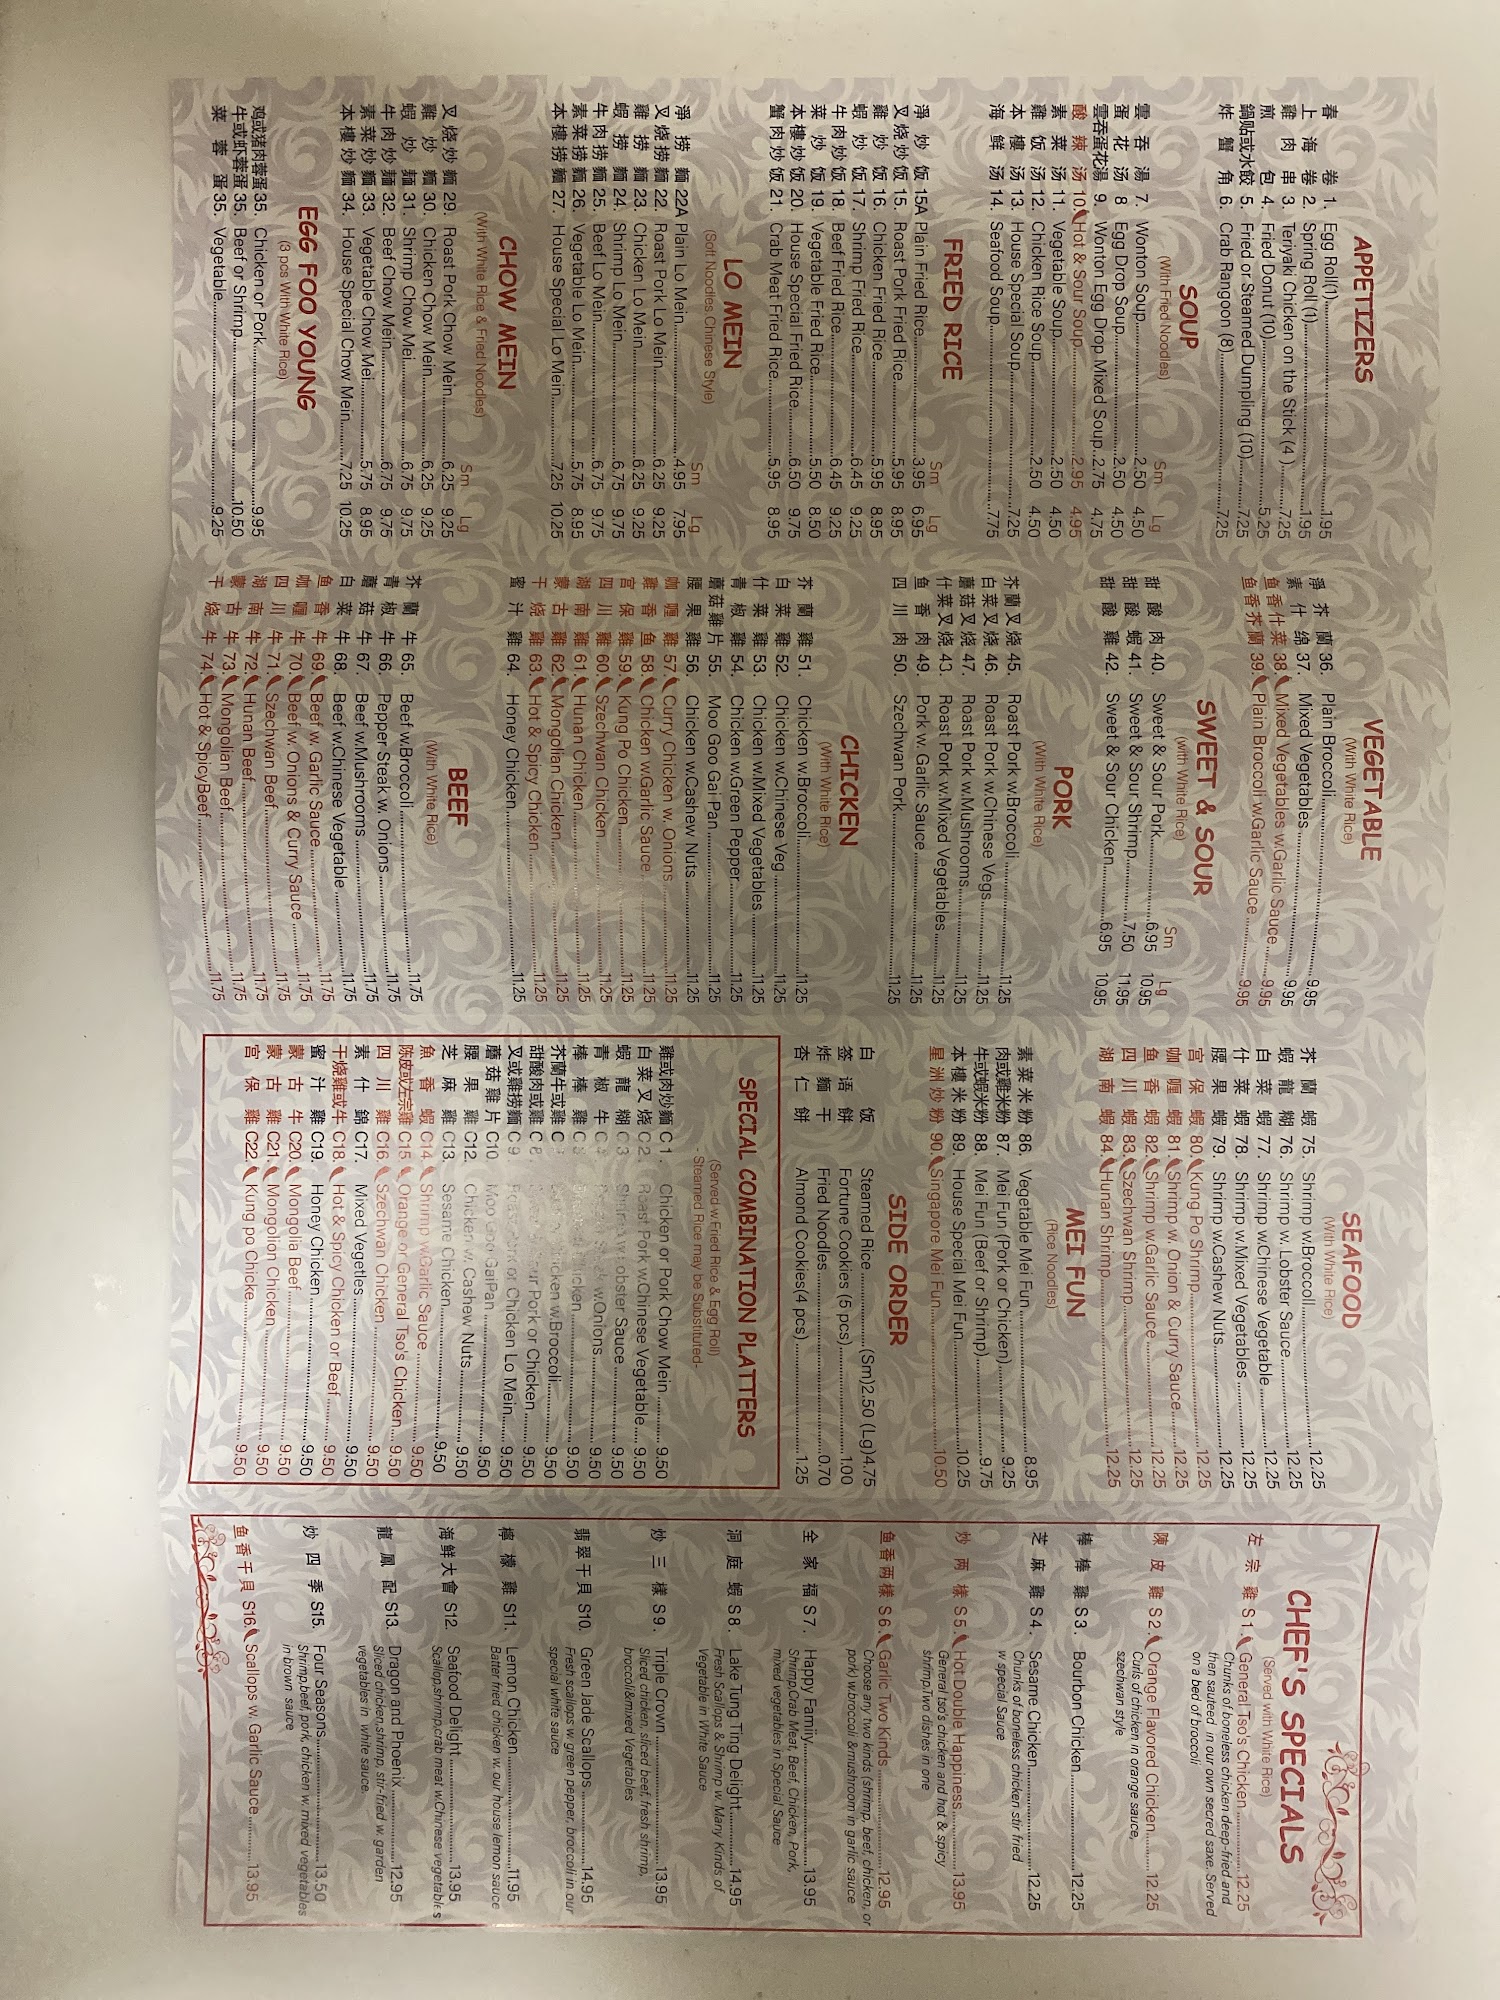 APPETIZERS
春 卷 1. Egg Roll(1)....1.95
上 海 卷 2. Spring Roll (1)....1.95
雞 肉 串 3. Teriyaki Chicken on the Stick (4)....7.25
煎 包 4. Fried Donut (10)....5.25
鍋貼或水餃 5. Fried or Steamed Dumpling (10)....7.25
炸 蟹 角 6. Crab Rangoon (8)....7.25
SOUP
(With Fried Noodles)
Sm Lg
雲 吞 湯 7. Wonton Soup....2.50 4.50
蛋 花 汤 8 Egg Drop Soup....2.50 4.50
雲吞蛋花湯 9. Wonton Egg Drop Mixed Soup..2.75 4.75
酸 辣 汤 10. Hot & Sour Soup....2.95 4.95
素 菜 汤 11. Vegetable Soup....2.50 4.50
雞 饭 汤 12. Chicken Rice Soup....2.50 4.50
本 樓 汤 13. House Special Soup....7.25
海 鮮 汤 14. Seafood Soup....7.75
FRIED RICE
Sm Lg
淨 炒 饭 15A Plain Fried Rice....3.95 6.95
叉 烧 炒 饭 15. Roast Pork Fried Rice....5.95 8.95
雞 炒 饭 16. Chicken Fried Rice....5.95 8.95
蝦 炒 饭 17. Shrimp Fried Rice....6.45 9.25
牛 肉 炒 饭 18. Beef Fried Rice....6.45 9.25
菜 炒 饭 19. Vegetable Fried Rice....5.50 8.50
本 樓 炒 饭 20. House Special Fried Rice....6.50 9.75
蟹 肉 炒 饭 21. Crab Meat Fried Rice....5.95 8.95
LO MEIN
(Soft Noodles Chinese Style)
Sm Lg
淨 捞 麵 22A Plain Lo Mein....4.95 7.95
叉 烧 捞 麵 22. Roast Pork Lo Mein....6.25 9.25
雞 捞 麵 23. Chicken Lo Mein....6.25 9.25
蝦 捞 麵 24. Shrimp Lo Mein....6.75 9.75
牛 肉 捞 麵 25. Beef Lo Mein....6.75 9.75
素 菜 捞 麵 26. Vegetable Lo Mein....5.75 8.95
本 樓 捞 麵 27. House Special Lo Mein....7.25 10.25
CHOW MEIN
(With White Rice & Fried Noodles)
Sm Lg
叉 烧 炒 麵 29. Roast Pork Chow Mein....6.25 9.25
雞 炒 麵 30. Chicken Chow Mein....6.25 9.25
蝦 炒 麵 31. Shrimp Chow Mei....6.75 9.75
牛 肉 炒 麵 32. Beef Chow Mein....6.75 9.75
素 菜 炒 麵 33. Vegetable Chow Mei....5.75 8.95
本 樓 炒 麵 34. House Special Chow Mein....7.25 10.25
EGG FOO YOUNG
(3 pcs With White Rice)
鸡或猪肉蓉蛋 35. Chicken or Pork....9.95
牛或虾蓉蛋 35. Beef or Shrimp....10.50
菜 蓉 蛋 35. Vegetable....9.25
VEGETABLE
(With White Rice)
淨 芥 蘭 36. Plain Broccoli....9.95
素 什 绵 37. Mixed Vegetables....9.95
鱼 香 什 菜 38. Mixed Vegetables w.Garlic Sauce....9.95
鱼 香 芥 蘭 39. Plain Broccoli w.Garlic Sauce....9.95
SWEET & SOUR
(with White Rice)
Sm Lg
甜 酸 肉 40. Sweet & Sour Pork....6.95 10.95
甜 酸 蝦 41. Sweet & Sour Shrimp....7.50 11.95
甜 酸 雞 42. Sweet & Sour Chicken....6.95 10.95
PORK
(With White Rice)
芥 蘭 叉 烧 45. Roast Pork w.Broccoli....11.25
白 菜 叉 烧 46. Roast Pork w.Chinese Vegs....11.25
蘑 菇 叉 烧 47. Roast Pork w.Mushrooms....11.25
什 菜 叉 烧 43. Roast Pork w.Mixed Vegetables....11.25
鱼 香 肉 49. Pork w. Garlic Sauce....11.25
四 川 肉 50. Szechwan Pork....11.25
CHICKEN
(With White Rice)
芥 蘭 雞 51. Chicken w.Broccoli....11.25
白 菜 雞 52. Chicken w.Chinese Veg....11.25
什 菜 雞 53. Chicken w.Mixed Vegetables....11.25
青 椒 雞 54. Chicken w.Green Pepper....11.25
蘑 菇 雞 片 55. Moo Goo Gai Pan....11.25
腰 果 雞 56. Chicken w.Cashew Nuts....11.25
咖 喱 雞 57. Curry Chicken w. Onions....11.25
雞 香 鱼 58. Chicken w.Garlic Sauce....11.25
宫 保 雞 59. Kung Po Chicken....11.25
四 川 雞 60. Szechwan Chicken....11.25
湖 南 雞 61. Hunan Chicken....11.25
蒙 古 雞 62. Mongolian Chicken....11.25
干 烧 雞 63. Hot & Spicy Chicken....11.25
蜜 汁 雞 64. Honey Chicken....11.25
BEEF
(With White Rice)
芥 蘭 牛 65. Beef w.Broccoli....11.75
青 椒 牛 66. Pepper Steak w. Onions....11.75
蘑 菇 牛 67. Beef w.Mushrooms....11.75
白 菜 牛 68. Beef w.Chinese Vegetable....11.75
鱼 香 牛 69. Beef w. Garlic Sauce....11.75
咖 喱 牛 70. Beef w. Onions & Curry Sauce....11.75
四 川 牛 71. Szechwan Beef....11.75
湖 南 牛 72. Hunan Beef....11.75
蒙 古 牛 73. Mongolian Beef....11.75
干 烧 牛 74. Hot & SpicyBeef....11.75
SEAFOOD
(With White Rice)
芥 蘭 蝦 75. Shrimp w.Broccoli....12.25
蝦 龍 糊 76. Shrimp w. Lobster Sauce....12.25
白 菜 蝦 77. Shrimp w.Chinese Vegetable....12.25
什 菜 蝦 78. Shrimp w.Mixed Vegetables....12.25
腰 果 蝦 79. Shrimp w.Cashew Nuts....12.25
宫 保 蝦 80. Kung Po Shrimp....12.25
咖 喱 蝦 81. Shrimp w. Onion & Curry Sauce....12.25
鱼 香 蝦 82. Shrimp w.Garlic Sauce....12.25
四 川 蝦 83. Szechwan Shrimp....12.25
湖 南 蝦 84. Hunan Shrimp....12.25
MEI FUN
(Rice Noodles)
素 菜 米 粉 86. Vegetable Mei Fun....8.95
肉或雞米粉 87. Mei Fun (Pork or Chicken)....9.25
牛或蝦米粉 88. Mei Fun (Beef or Shrimp)....9.75
本 樓 米 粉 89. House Special Mei Fun....10.25
星 洲 炒 粉 90. Singapore Mei Fun....10.50
SIDE ORDER
白 饭 Steamed Rice....(Sm)2.50 (Lg)4.75
签 语 餅 Fortune Cookies (5 pcs)....1.00
炸 麵 干 Fried Noodles....0.70
杏 仁 餅 Almond Cookies(4 pcs)....1.25
SPECIAL COMBINATION PLATTERS
(Served w.Fried Rice & Egg Roll)
- Steamed Rice may be Substituted-
雞或肉炒麵 C 1. Chicken or Pork Chow Mein....9.50
白 菜 叉 烧 C 2. Roast Pork w.Chinese Vegetable....9.50
蝦 龍 糊 C 3 Shrimp w Lobster Sauce....9.50
青 椒 牛 w.Onions....9.50
棒 棒 雞 Chicken....9.50
芥蘭牛或雞 Chicken w.Broccoli....9.50
甜酸肉或雞 C 8. Sour Pork or Chicken....9.50
叉或雞捞麵 C 9. Roast Pork or Chicken Lo Mein....9.50
蘑 菇 雞 片 C10. Moo Goo GaiPan....9.50
腰 果 雞 C12. Chicken w. Cashew Nuts....9.50
芝 麻 雞 C13. Sesame Chicken....9.50
魚 香 蝦 C14. Shrimp w.Garlic Sauce....9.50
陈皮或左宗雞 C15. Orange or General Tso's Chicken....9.50
四 川 雞 C16. Szechwan Chicken....9.50
素 什 錦 C17. Mixed Vegetles....9.50
干烧雞或牛 C18. Hot & Spicy Chicken or Beef....9.50
蜜 汁 雞 C19. Honey Chicken....9.50
蒙 古 牛 C20. Mongolia Beef....9.50
蒙 古 雞 C21. Mongolion Chicken....9.50
宫 保 雞 C22. Kung po Chicke....9.50
CHEF'S SPECIALS
(Served with White Rice)
左 宗 雞 S 1. General Tso's Chicken....12.25
Chunks of boneless chicken deep-fried and
then sauteed in our own secred saxe. Served
on a bed of broccoli
陳 皮 雞 S 2. Orange Flavored Chicken....12.25
Curls of chicken in orange sauce,
szechwan style
棒 棒 雞 S 3. Bourbon Chicken....12.25
芝 麻 雞 S 4. Sesame Chicken....12.25
Chunks of boneless chicken stir fried
w special Sauce
炒 两 樣 S 5. Hot Double Happiness....13.95
General tso's chicken and hot & spicy
shrimp.Two dishes in one
鱼 香 两 樣 S 6. Garlic Two Kinds....12.95
Choose any two kinds (shrimp, beef, chicken, or
pork) w.broccoli &mushroom in garlic sauce
全 家 福 S 7. Happy Famiiy....13.95
Shrimp,Crab Meat, Beef, Chicken, Pork,
mixed vegetables in Special Sauce
洞 庭 蝦 S 8. Lake Tung Ting Delight....14.95
Fresh Scallops & Shrimp w. Many Kinds of
Vegetable in White Sauce
炒 三 樣 S 9. Triple Crown....13.95
Sliced chicken, sliced beef, fresh shrimp,
broccoli&mixed Vegetables
翡 翠 干 貝 S10. Green Jade Scallops....14.95
Fresh scallops w. green pepper, broccoli in our
special white sauce
檸 檬 雞 S11. Lemon Chicken....11.95
Batter fried chicken w. our house lemon sauce
海 鮮 大 會 S12. Seafood Delight....13.95
Scallop,shrimp,crab meat w.Chinese vegetables
龍 鳳 配 S13. Dragon and Phoenix....12.95
Sliced chicken,shrimp, stir-fried w. garden
vegetables in white sauce.
炒 四 季 S15. Four Seasons....13.50
Shrimp,beef, pork, chicken w. mixed vegetables
in brown sauce
鱼 香 干 貝 S16. Scallops w. Garlic Sauce....13.95